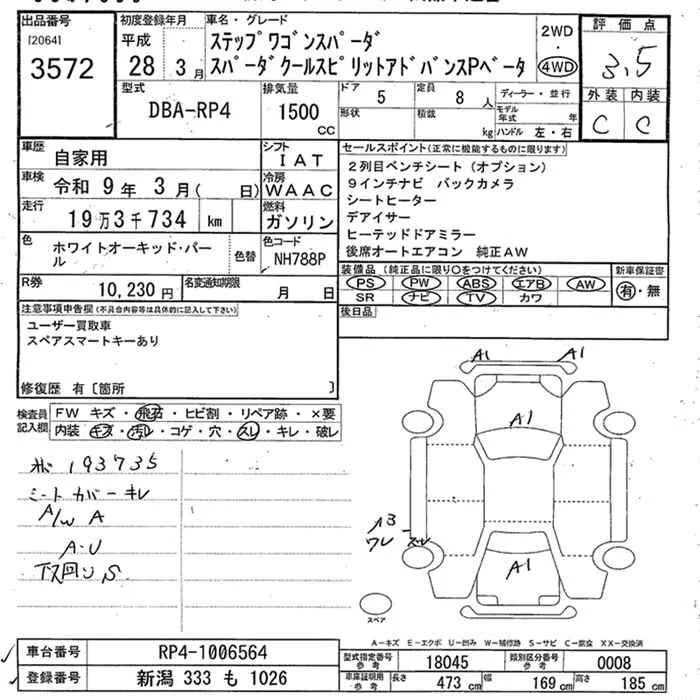 出品番号 初度登録年月 車名・グレード 評価点
[2064] 平成 ステップワゴンスパーダ 2WD
3572 28 3月 スパーダクールスピリットアドバンスPベータ 4WD 3,5
型式 排気量 ドア 定員 ディーラー・並行 外装 内装
DBA-RP4 1500 CC 5 8人 モデル年式 年 C C
形状 積載 kg ハンドル 左・右
車歴 自家用 シフト IAT セールスポイント(正常に機能するものに限ります)
車検 令和9年 3月( 日) 冷房 WAAC 2列目ベンチシート(オプション)
9インチナビ バックカメラ
走行 19万3千734 km 燃料 ガソリン シートヒーター
デアイサー
色 ホワイトオーキッド・パール 色替 色コード NH788P ヒーテッドドアミラー
後席オートエアコン 純正AW
R券 10,230円 名変通知期限 月 日 装備品(純正品に限り○をつけてください) 新車保証書
PS PW ABS エアB AW 有・無
SR ナビ TV カワ
注意事項申告欄(不具合内容等は具体的に記入して下さい) 後日品
ユーザー買取車
スペアスマートキーあり
修復歴 有[箇所 ]
検査員記入欄 FW キズ・飛石・ヒビ割・リペア跡・×要
内装 キズ・汚レ・コゲ・穴・スレ・キレ・破レ
193735
シートカバーキレ
A/W A
A・U
下回リS
A1 A1
A1
A1
スペア
A－キズ E－エクボ U－凹み W－補修跡 S－サビ C－腐食 XX－交換済
車台番号 RP4-1006564 型式指定番号 参考 18045 類別区分番号 参考 0008
登録番号 新潟 333 も 1026 車庫証明用 参考 長さ 473 cm 幅 169 cm 高さ 185 cm